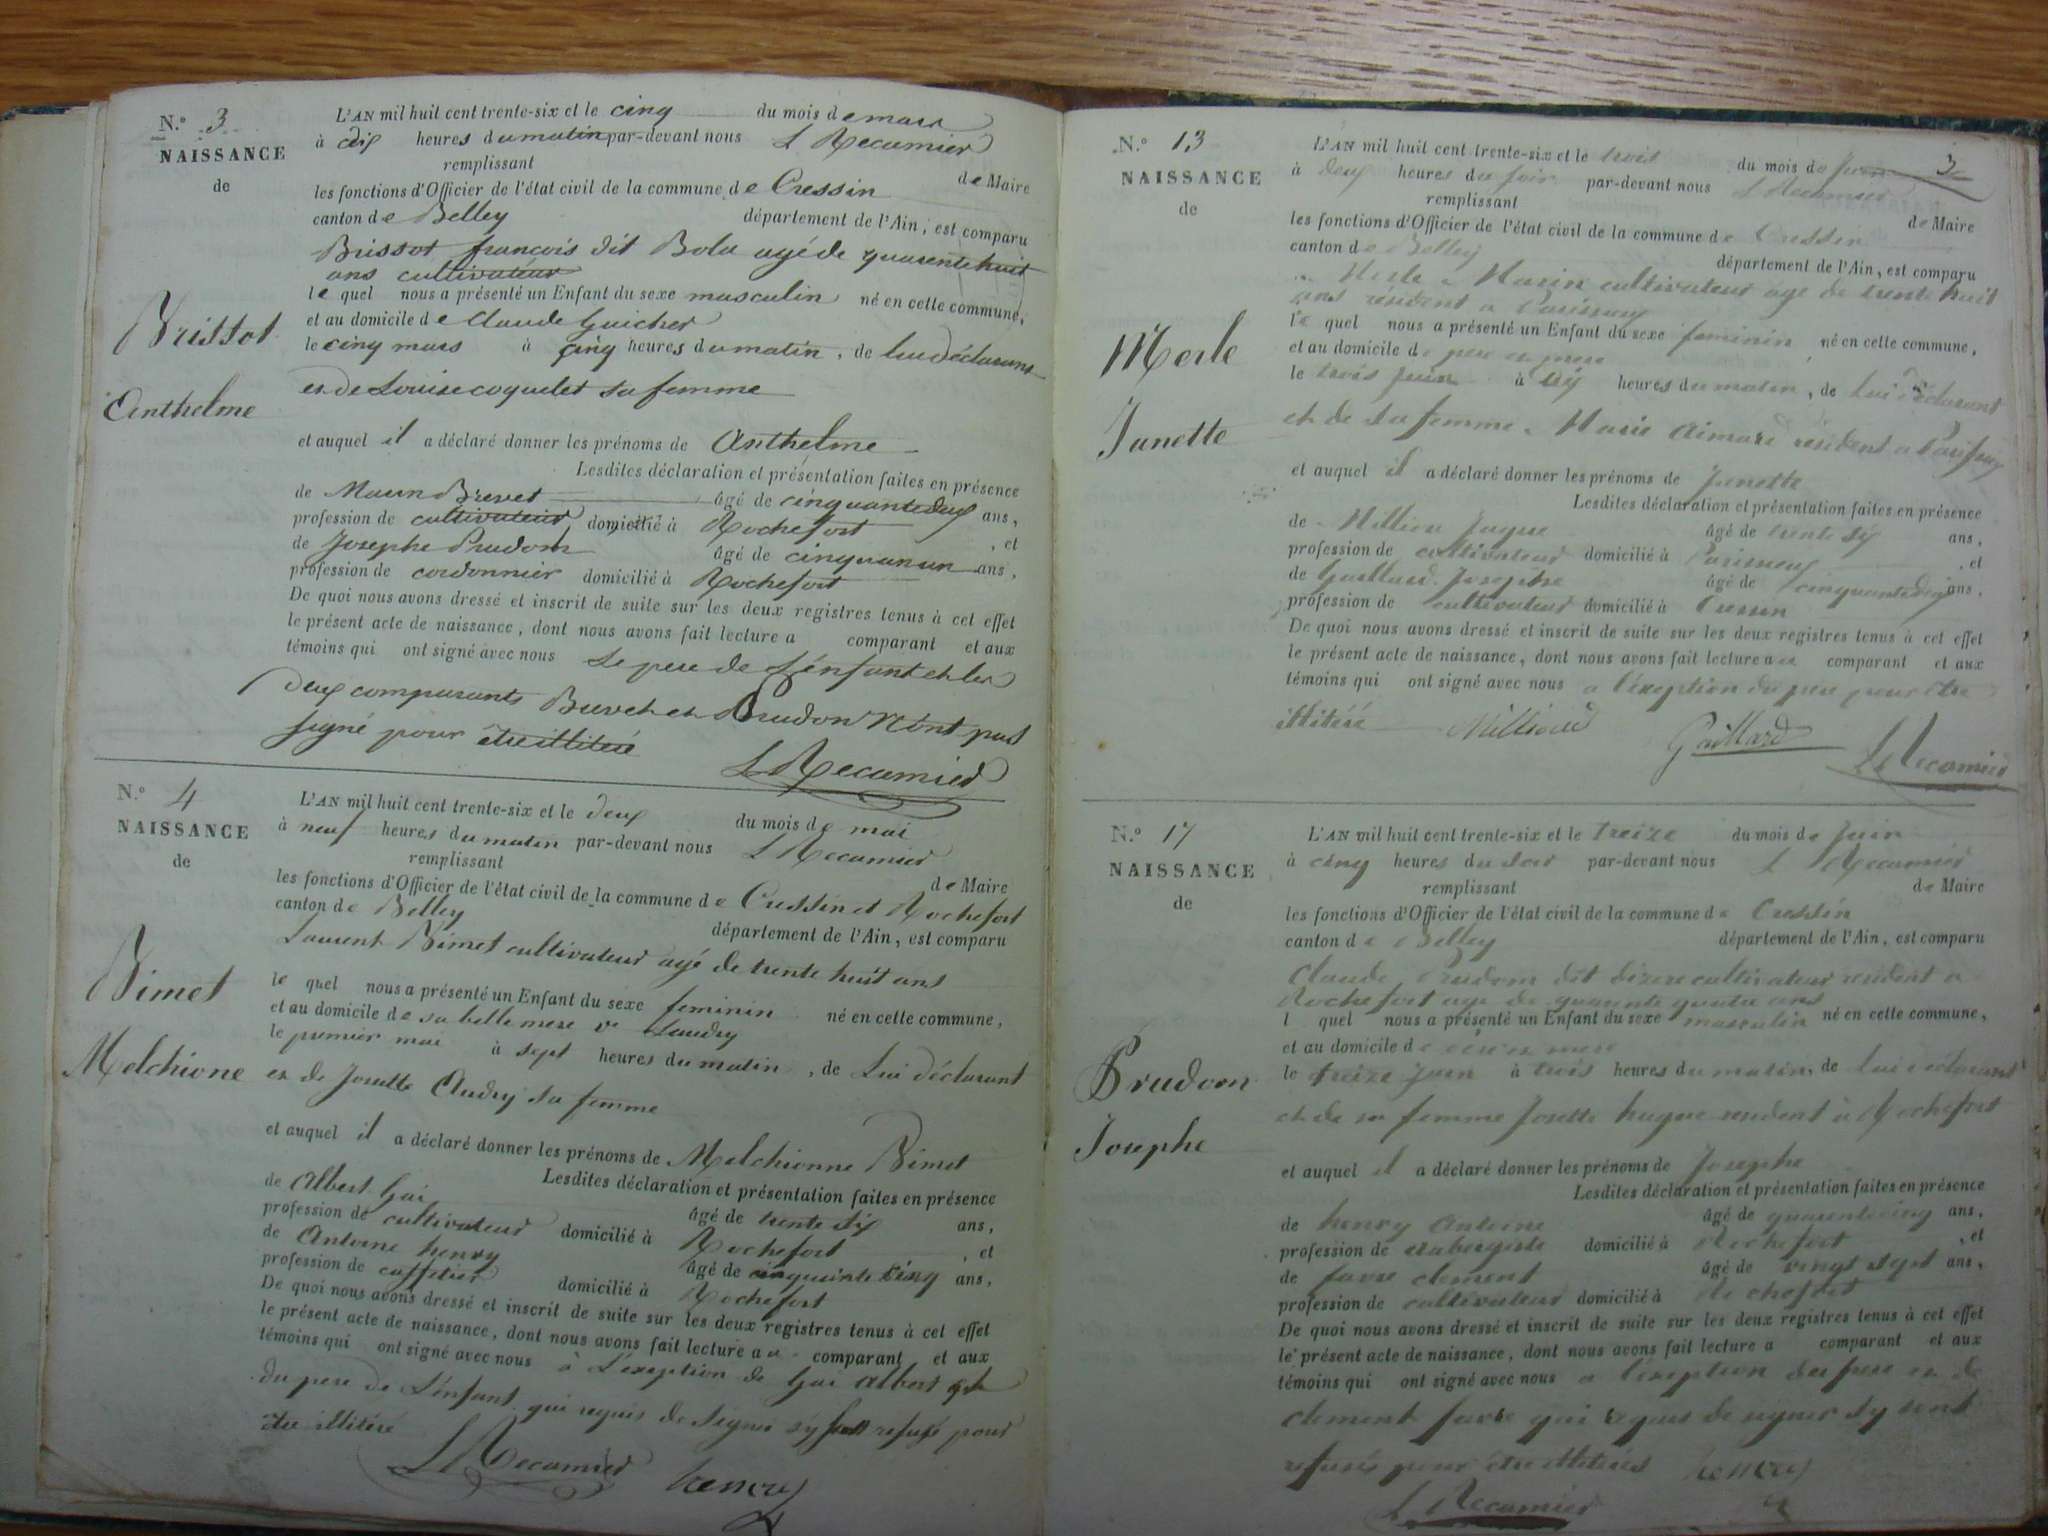 N.° 3
NAISSANCE
de
Brissot
Anthelme
L'AN mil huit cent trente-six et le cinq du mois de mars
à dix heures du matin par-devant nous L Recumier
remplissant de Maire
les fonctions d'Officier de l'état civil de la commune de Cressin
canton de Belley département de l'Ain, est comparu
Brissot françois dit Bola agé de quarente huit
ans cultivateur
le quel nous a présenté un Enfant du sexe masculin né en cette commune,
et au domicile de Claude Guicher
le cinq mars à cinq heures du matin, de lui déclarant
et de Louise coquelet sa femme
et auquel il a déclaré donner les prénoms de Anthelme
Lesdites déclaration et présentation faites en présence
de Brevet âgé de cinquante deux ans,
profession de cultivateur domicilié à Rochefort, et
de Josephe Prudom âgé de cinquan un ans,
profession de cordonnier domicilié à Rochefort
De quoi nous avons dressé et inscrit de suite sur les deux registres tenus à cet effet
le présent acte de naissance, dont nous avons fait lecture a comparant et aux
témoins qui ont signé avec nous Le pere de L'énfant et les
deux comparants et Prudon N'ont pas
signé pour être illitéré
L Recumier
N.° 4
NAISSANCE
de
Bimet
Melchione
L'AN mil huit cent trente-six et le deux du mois de mai
à neuf heures du matin par-devant nous L Recumier
remplissant de Maire
les fonctions d'Officier de l'état civil de la commune de Cressin et Rochefort
canton de Belley département de l'Ain, est comparu
Laurent Bimet cultivateur agé de trente huit ans
le quel nous a présenté un Enfant du sexe feminin né en cette commune,
et au domicile de sa belle mere ve
le premier mai à sept heures du matin, de Lui déclarant
et de Josette Audry sa femme
et auquel il a déclaré donner les prénoms de Melchionne Bimet
Lesdites déclaration et présentation faites en présence
de Albert Gai âgé de trente six ans,
profession de cultivateur domicilié à Rochefort, et
de Antoine henry âgé de cinquante cinq ans,
profession de caffetier domicilié à Rochefort
De quoi nous avons dressé et inscrit de suite sur les deux registres tenus à cet effet
le présent acte de naissance, dont nous avons fait lecture au comparant et aux
témoins qui ont signé avec nous à L'exeption de Gai Albert et
du pere de L'énfant qui requis de signer s'y sont refusé pour
etre illitéré
L Recumier henry
N.° 13
3
NAISSANCE
de
Merle
Janette
L'AN mil huit cent trente-six et le trois du mois de juin
à deux heures du soir par-devant nous L Recumier
remplissant de Maire
les fonctions d'Officier de l'état civil de la commune de Cressin
canton de Belley département de l'Ain, est comparu
Merle Marin cultivateur âgé de trente huit
ans résident a
le quel nous a présenté un Enfant du sexe feminin né en cette commune,
et au domicile de pere et mere
le trois juin à six heures du matin, de Lui déclarant
et de sa femme Marie Aimard résident a
et auquel il a déclaré donner les prénoms de Janette
Lesdites déclaration et présentation faites en présence
de Million Jaque âgé de trente six ans,
profession de cultivateur domicilié à, et
de Gaillard Josephe âgé de cinquante ans,
profession de cultivateur domicilié à Cressin
De quoi nous avons dressé et inscrit de suite sur les deux registres tenus à cet effet
le présent acte de naissance, dont nous avons fait lecture au comparant et aux
témoins qui ont signé avec nous a l'exeption du pere pour être
illitéré Gaillard L Recumier
N.° 17
NAISSANCE
de
Prudom
Josephe
L'AN mil huit cent trente-six et le treize du mois de Juin
à cinq heures du soir par-devant nous L Recumier
remplissant de Maire
les fonctions d'Officier de l'état civil de la commune de Cressin
canton de Belley département de l'Ain, est comparu
Claude Prudom dit cultivateur resident a
Rochefort age de quarente quatre ans
l quel nous a présenté un Enfant du sexe masculin né en cette commune,
et au domicile de pere et mere
le treize juin à trois heures du matin, de Lui déclarant
et de sa femme Josette hugue resident à Rochefort
et auquel il a déclaré donner les prénoms de Josephe
Lesdites déclaration et présentation faites en présence
de henry antoine âgé de quarente cinq ans,
profession de aubergiste domicilié à Rochefort, et
de favre clement âgé de vingt sept ans,
profession de cultivateur domicilié à Rochefort
De quoi nous avons dressé et inscrit de suite sur les deux registres tenus à cet effet
le présent acte de naissance, dont nous avons fait lecture a comparant et aux
témoins qui ont signé avec nous a l'exeption du pere et de
clement favre qui requis de signer s'y sont
refusés pour être illitérés henry
L Recumier